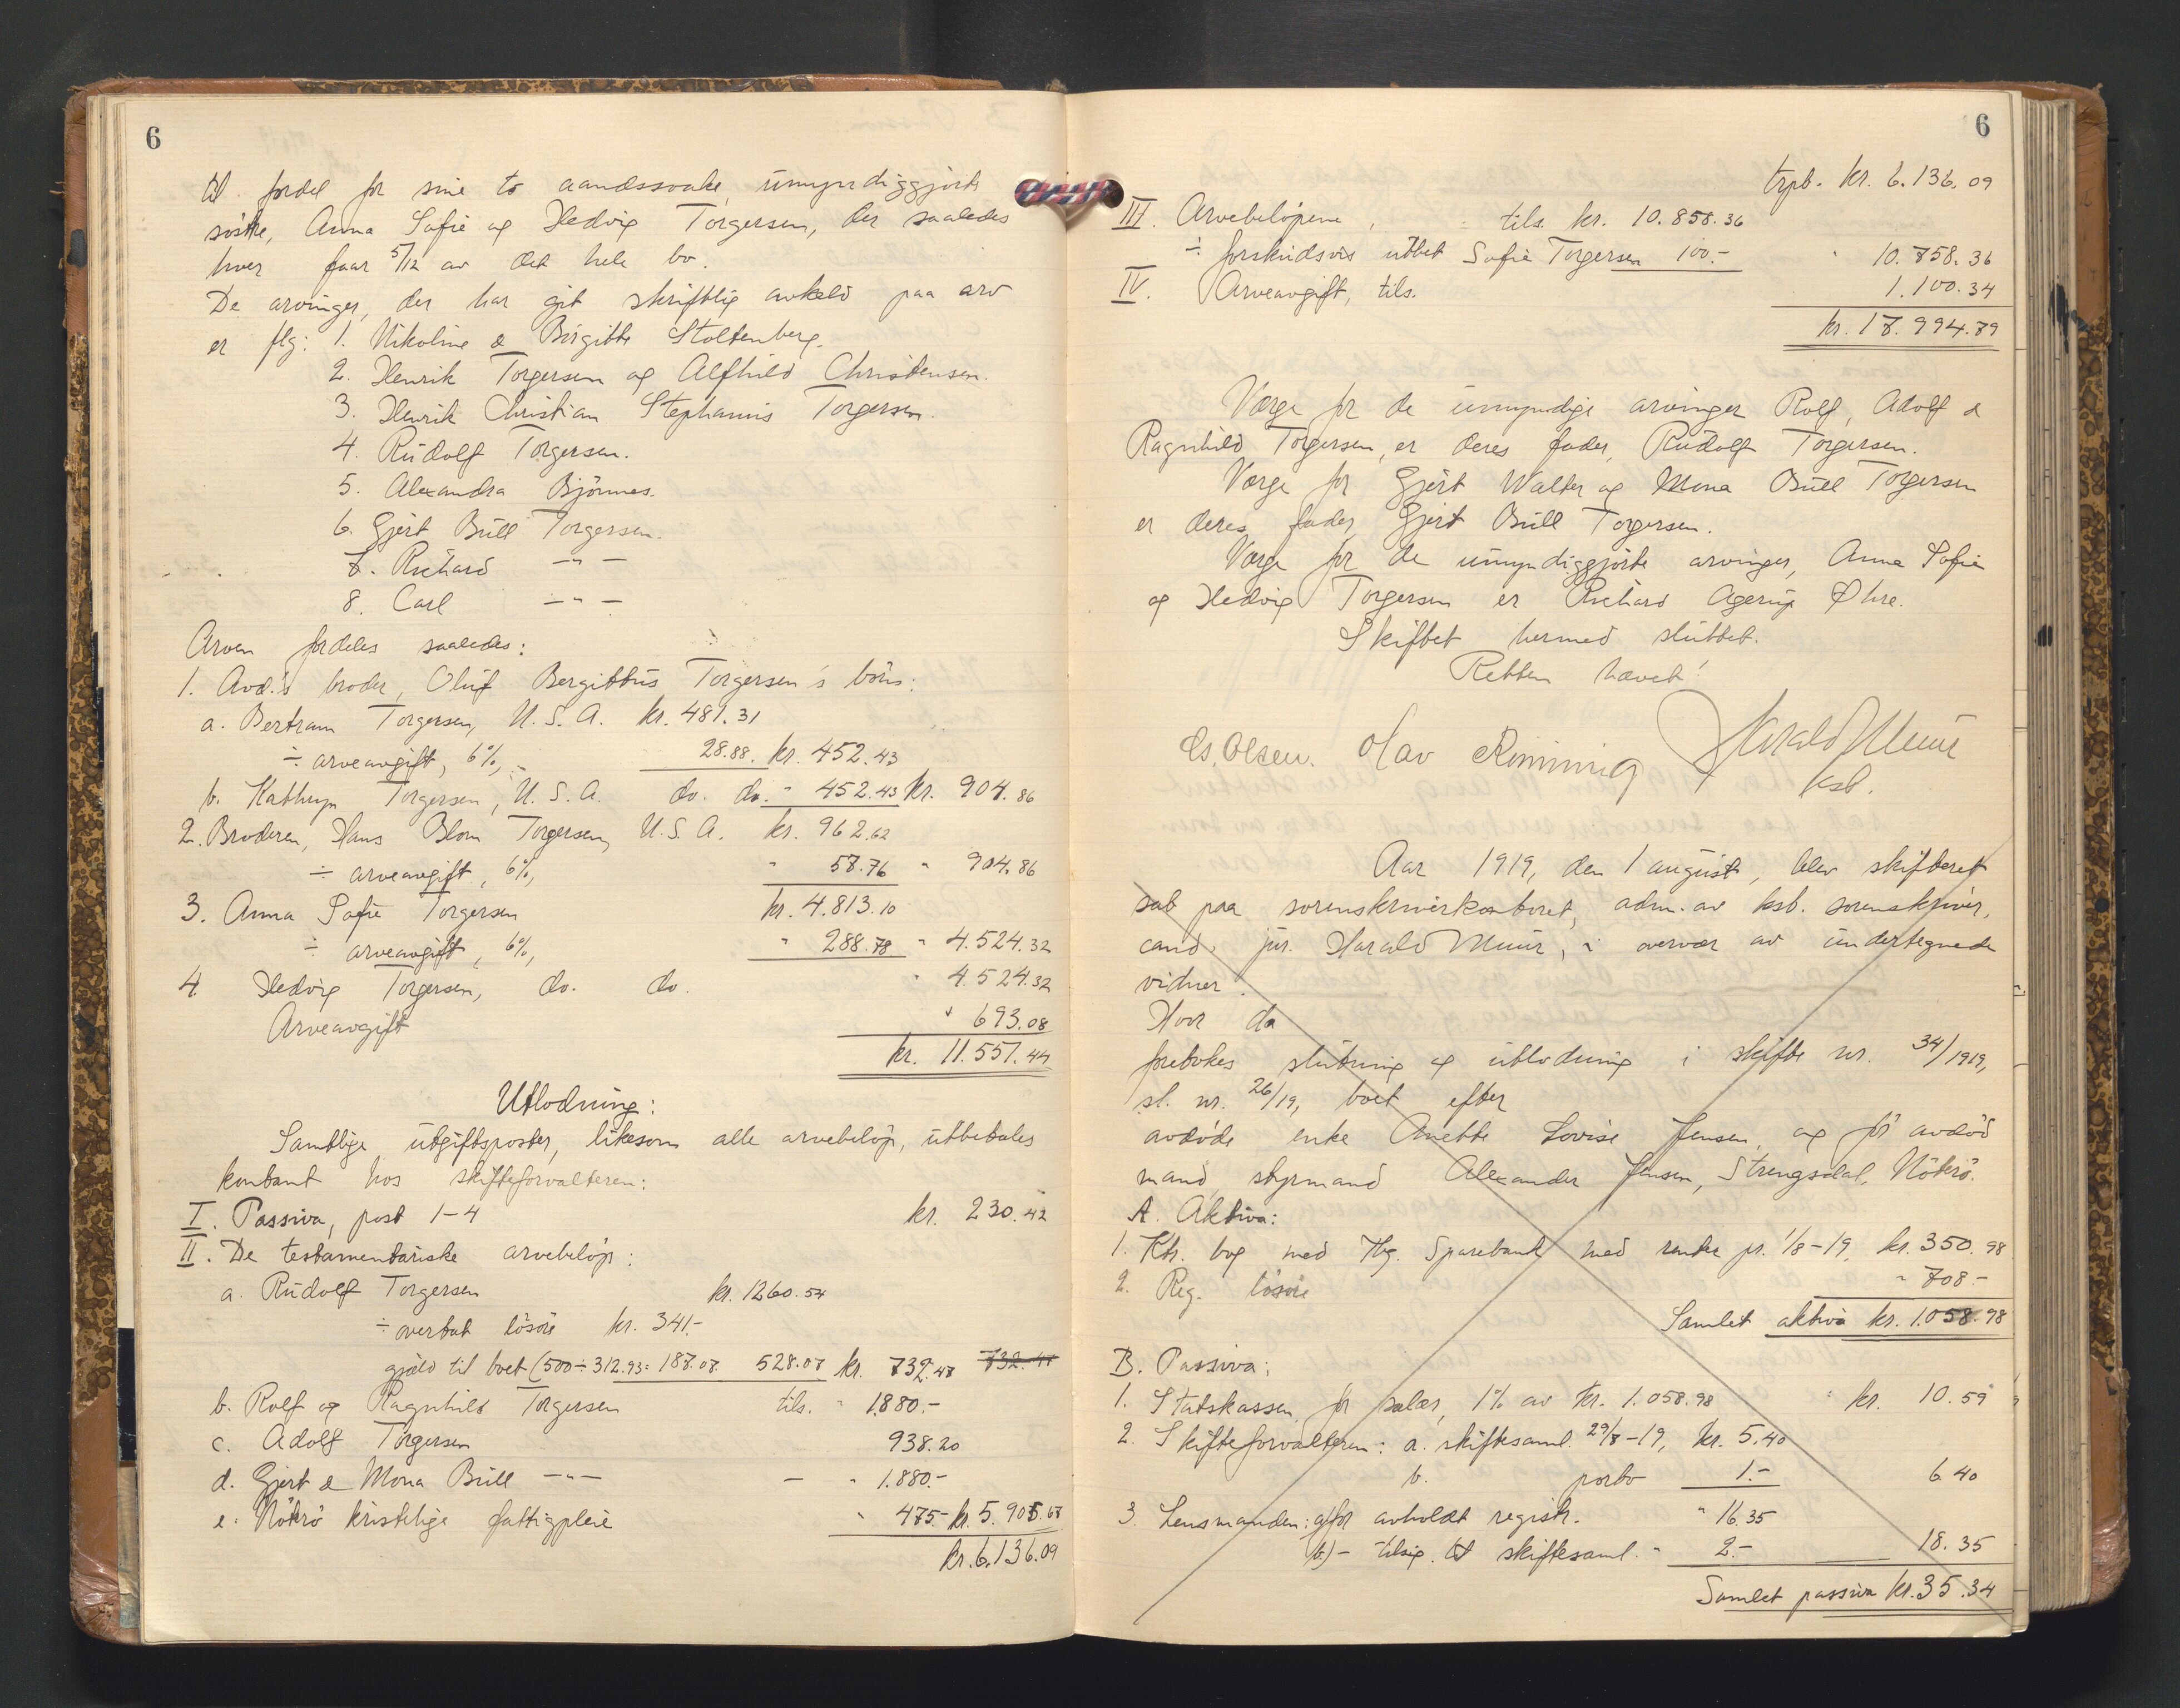 6
til fordel for sine to aandssvake, umyndiggjorte
søstre, Anna Sofie og Hedvig Torgersen, der saaledes
hver faar 5/12 av det hele bo.
De arvinger, der har git skriftlig avkald paa arv
er flg: 1. Nikoline & Birgitte Stoltenberg.
2. Henrik Torgersen og Alfhild Christensen.
3. Henrik Christian Stephanus Torgersen.
4. Rudolf Torgersen.
5. Alexandra Bjönnes.
6. Gjert Bull Torgersen.
7. Richard —"—
8. Carl —"—
Arven fordeles saaledes:
1. Avd.'s broder, Oluf Bergittus Torgersen's börn:
a. Bertram Torgersen, U.S.A. kr. 481.31
÷ arveavgift, 6%, - 28.88. kr. 452.43
b. Kathryn Torgersen, U.S.A. do. do. " 452.43 kr. 904.86
2. Broderen, Hans Blom Torgersen, U.S.A. kr. 962.62
÷ arveavgift, 6%, " 57.76 " 904.86
3. Anna Sofie Torgersen kr. 4.813.10
÷ arveavgift, 6%, " 288.78 " 4.524.32
4. Hedvig Torgersen, do. do. " 4.524.32
Arveavgift " 693.08
kr. 11.551.44
Utlodning:
Samtlige utgiftsposter, likesom alle arvebeløp, utbetales
kontant hos skifteforvalteren:
I. Passiva, post 1-4 kr. 230.42
II. De testamentariske arvebeløp:
a. Rudolf Torgersen kr. 1260.54
÷ overtat lösöre kr. 341.-
gjæld til boet (500÷312.93= 187.07 528.07 kr. 732.47 732.47
b. Rolf og Ragnhild Torgersen tils. " 1880.-
c. Adolf Torgersen 938.20
d. Gjert & Mona Bull —"— — " 1.880.-
e. Nötterö kristelige fattigpleie " 475.- kr. 5.905.67
kr. 6.136.09
6
trpt. kr. 6.136.09
III. Arvebeløpene, tils. kr. 10.858.36
÷ forskudsvis utbet Sofie Torgersen 100.- " 10.758.36
IV. Arveavgift, tils. 1.100.34
kr. 17.994.79
Verge for de umyndige arvinger Rolf, Adolf &
Ragnhild Torgersen, er deres fader, Rudolf Torgersen.
Verge for Gjert Walter og Mona Bull Torgersen
er deres fader, Gjert Bull Torgersen.
Verge for de umyndiggjorte arvinger, Anna Sofie
og Hedvig Torgersen er Richard Agerup Øhre.
Skiftet hermed sluttet.
Retten hævet!
Olav Rimming Harald Muur
ksb.
Aar 1919, den 1 august, blev skifteret
sat paa sorenskriverkontoret, adm. av ksb. sorenskriver,
cand. jur. Harald Muur, i overvær av undertegnede
vidner.
Hvor da
foretokes slutning og utlodning i skifte nr. 34/1919,
sl. nr. 26/19, boet efter
avdøde enke Anette Lovise Jensen, og før avdød
mand, styrmand Alexander Jensen, Strengsdal, Nötterö.
A. Aktiva:
1. Ktr. bog med Tbg. Sparebank med renter pr. 1/8-19, kr. 350.98
2. Reg. lösöre " 708.-
Samlet aktiva kr. 1.058.98
B. Passiva:
1. Statskassen, for salær, 1% av kr. 1.058.98 kr. 10.59
2. Skifteforvalteren: a. skiftesaml. 29/8-19, kr. 5.40
b. porto 1.- 6.40
3. Lensmanden: a) for avholdt registr. " 16.35
b) - tilsig. til skiftesaml. " 2.- 18.35
Samlet passiva kr. 35.34